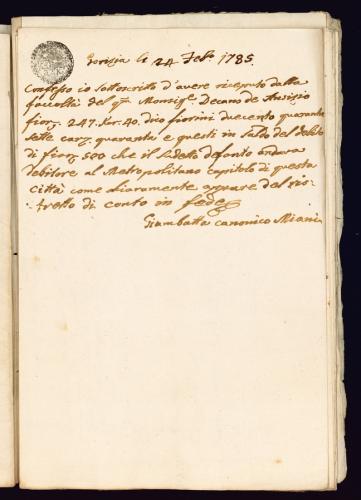 Gorizia li 24 Feb. 1785
Confesso io sottoscritto d'avere ricevuto dalla
facoltà del qm Monsigr. Decano de
fior. 247. Kr. 40. dico fiorini duecento quaranta
sette car. quaranta e questi in saldo del debito
di fior. 500 che il sudetto defonto andava
debitore al Metropolitano capitolo di questa
città come chiaramente appare dal ris-
-tretto di conto in fede
Giambatta canonico Miani